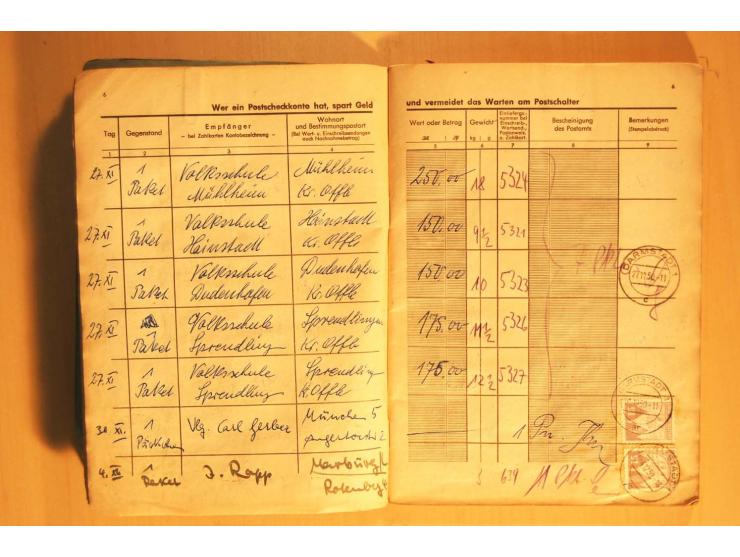 6
Wer ein Postscheckkonto hat, spart Geld
Tag
Gegenstand
Empfänger
– bei Zahlkarten Kontobezeichnung –
Wohnort
und Bestimmungspostort
(Bei Wert- u. Einschreibsendungen
auch Nachnahmebetrag)
1 2 3 4
27. XI 1 Paket Volksschule Mühlheim Mühlheim Kr. Offb
27. XI 1 Paket Volksschule Hainstadt Hainstadt Kr. Offb
27. XI 1 Paket Volksschule Dudenhofen Dudenhofen Kr. Offb.
27. XI 1 Paket Volksschule Sprendling Sprendlingen Kr. Offb.
27. XI 1 Paket Volksschule Sprendling Sprendlingen K. Offb
30. XI. 1 Päckchen Vlg. Carl Gerber München 5
4. XII 1 Paket J. Rapp Marburg/L
6
und vermeidet das Warten am Postschalter
Wert oder Betrag
Gewicht
kg g
Einlieferungs-
nummer bei
Einschreib-,
Wertsend.,
Postanweis.
o. Zahlkart.
Bescheinigung
des Postamts
Bemerkungen
(Stempelabdruck)
5 6 7 8 9
250.00 18 5324
150.00 9 1/2 5321
150.00 10 5323
175.00 11 1/2 5326
175.00 12 1/2 5327
1
5 639
DARMSTADT 1